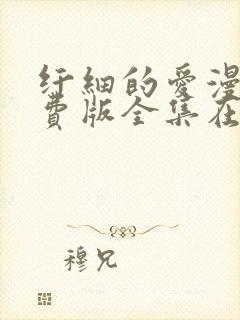 纤细的爱漫
费版全集在
穆兄